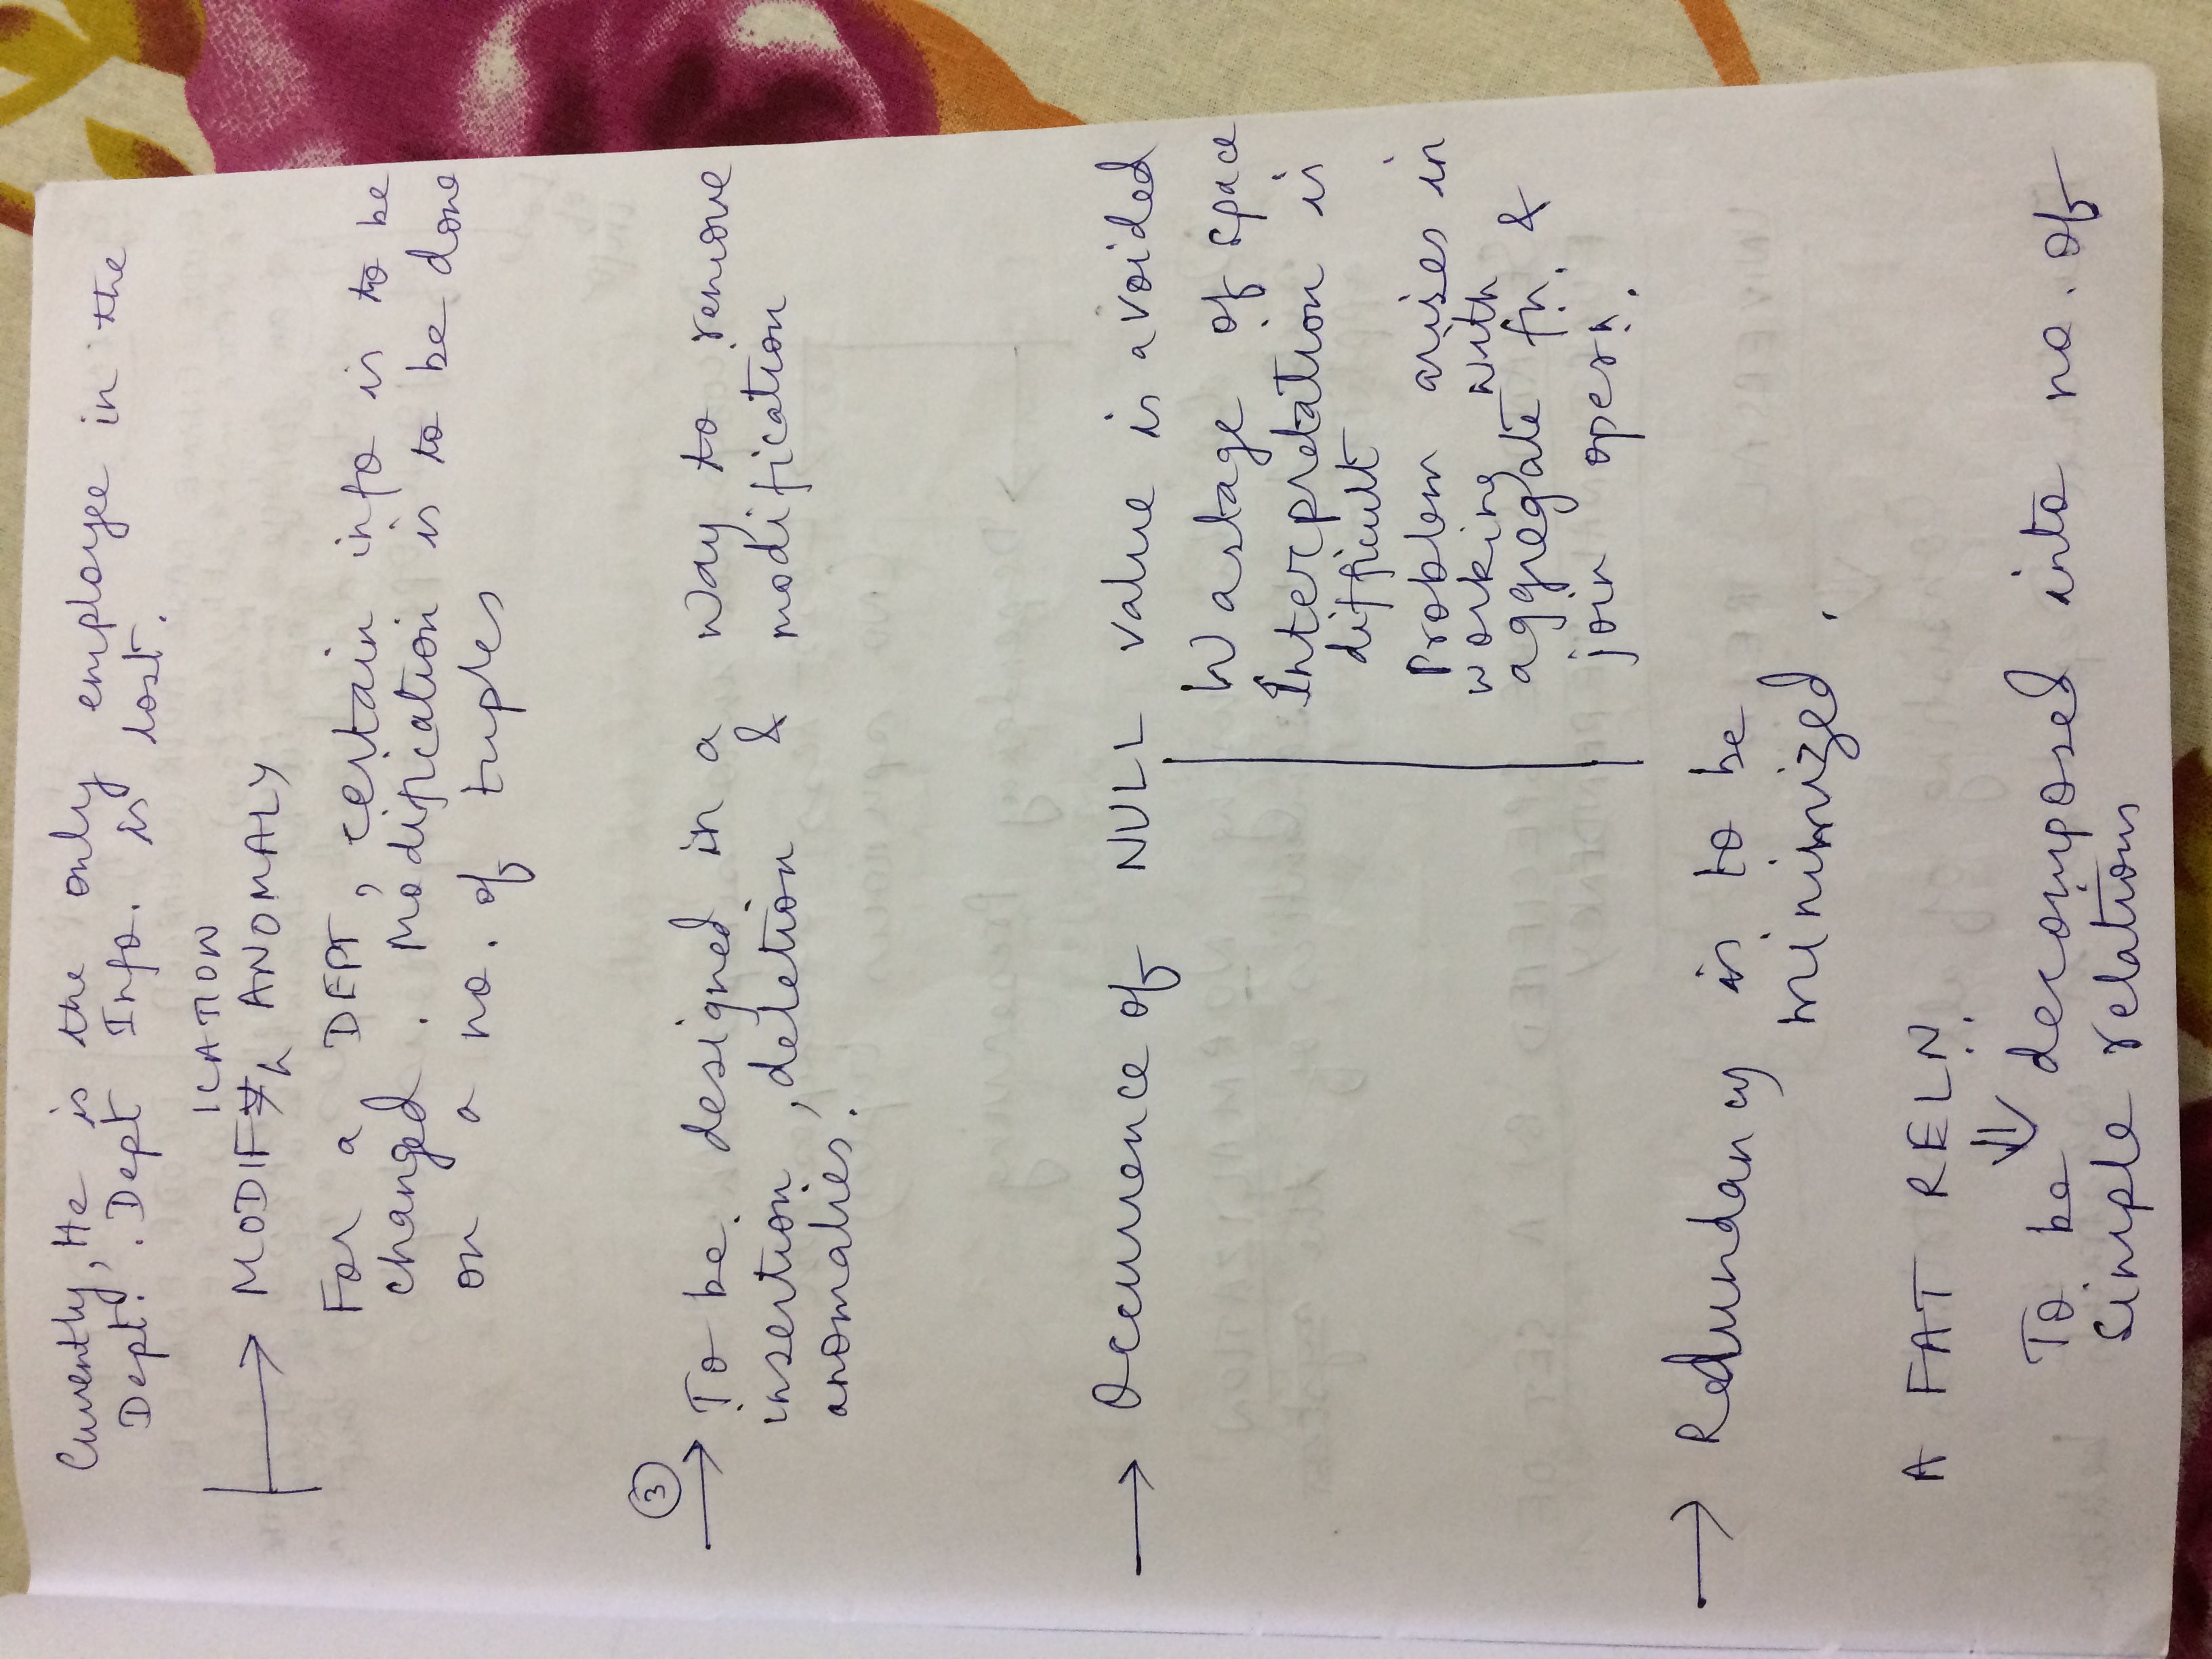 Currently, He is the only employee in the
Dept. . Dept Info. is lost.
ICATION
MODIF ANOMALY
For a DEPT, certain info is to be
changed. Modification is to be done
on a no. of tuples
3
To be designed in a way to remove
insertion, deletion & modification
anomalies.
Occurrence of NULL value is avoided
Wastage of space
Interpretation is
difficult
Problem arises in
working with
aggregate fn. &
join opern.
Redundancy is to be
minimized.
A FAT RELN.
To be decomposed into no. of
simple relations